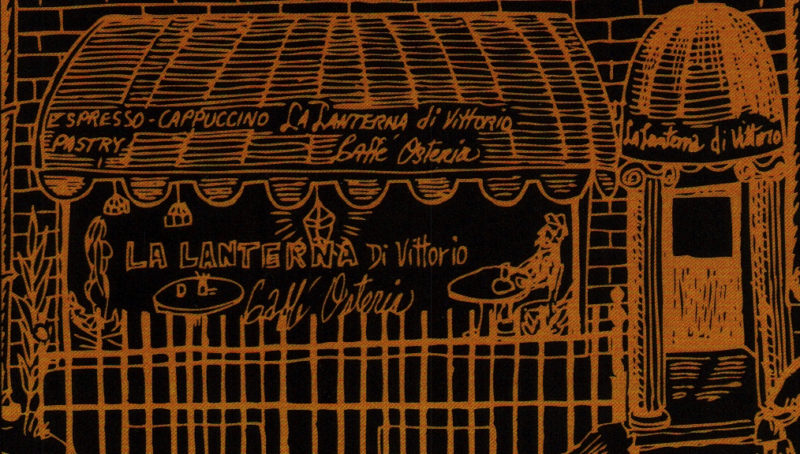 ESPRESSO - CAPPUCCINO LA LANTERNA di Vittorio
PASTRY Caffé Osteria
La Lanterna di Vittorio
LA LANTERNA Di Vittorio
Caffé Osteria